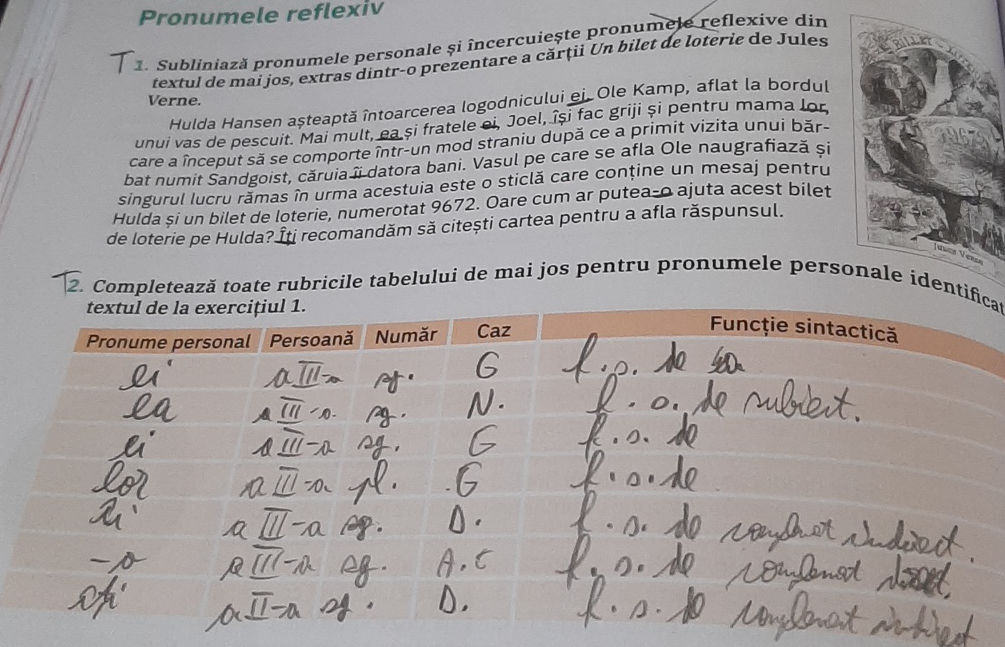 Pronumele reflexiv
1. Subliniază pronumele personale și încercuiește pronumele reflexive din
textul de mai jos, extras dintr-o prezentare a cărții Un bilet de loterie de Jules
Verne.
Hulda Hansen așteaptă întoarcerea logodnicului ei, Ole Kamp, aflat la bordul
unui vas de pescuit. Mai mult, ea și fratele ei, Joel, își fac griji și pentru mama lor,
care a început să se comporte într-un mod straniu după ce a primit vizita unui băr-
bat numit Sandgoist, căruia îi datora bani. Vasul pe care se afla Ole naugrafiază și
singurul lucru rămas în urma acestuia este o sticlă care conține un mesaj pentru
Hulda și un bilet de loterie, numerotat 9672. Oare cum ar putea-o ajuta acest bilet
de loterie pe Hulda? Îți recomandăm să citești cartea pentru a afla răspunsul.
2. Completează toate rubricile tabelului de mai jos pentru pronumele personale identificat
textul de la exercițiul 1.
Pronume personal Persoană Număr Caz Funcție sintactică
ei a III-a sg. G f.s. de
ea a III-a sg. N. f.s. de subiect.
ei a III-a sg. G f.s. de
lor a III-a pl. G f.s. de
îi a III-a sg. D. f.s. de complement indirect.
-o a III-a sg. A. f.s. de complement direct.
a II-a sg. D. f.s. de complement indirect
Jules Verne